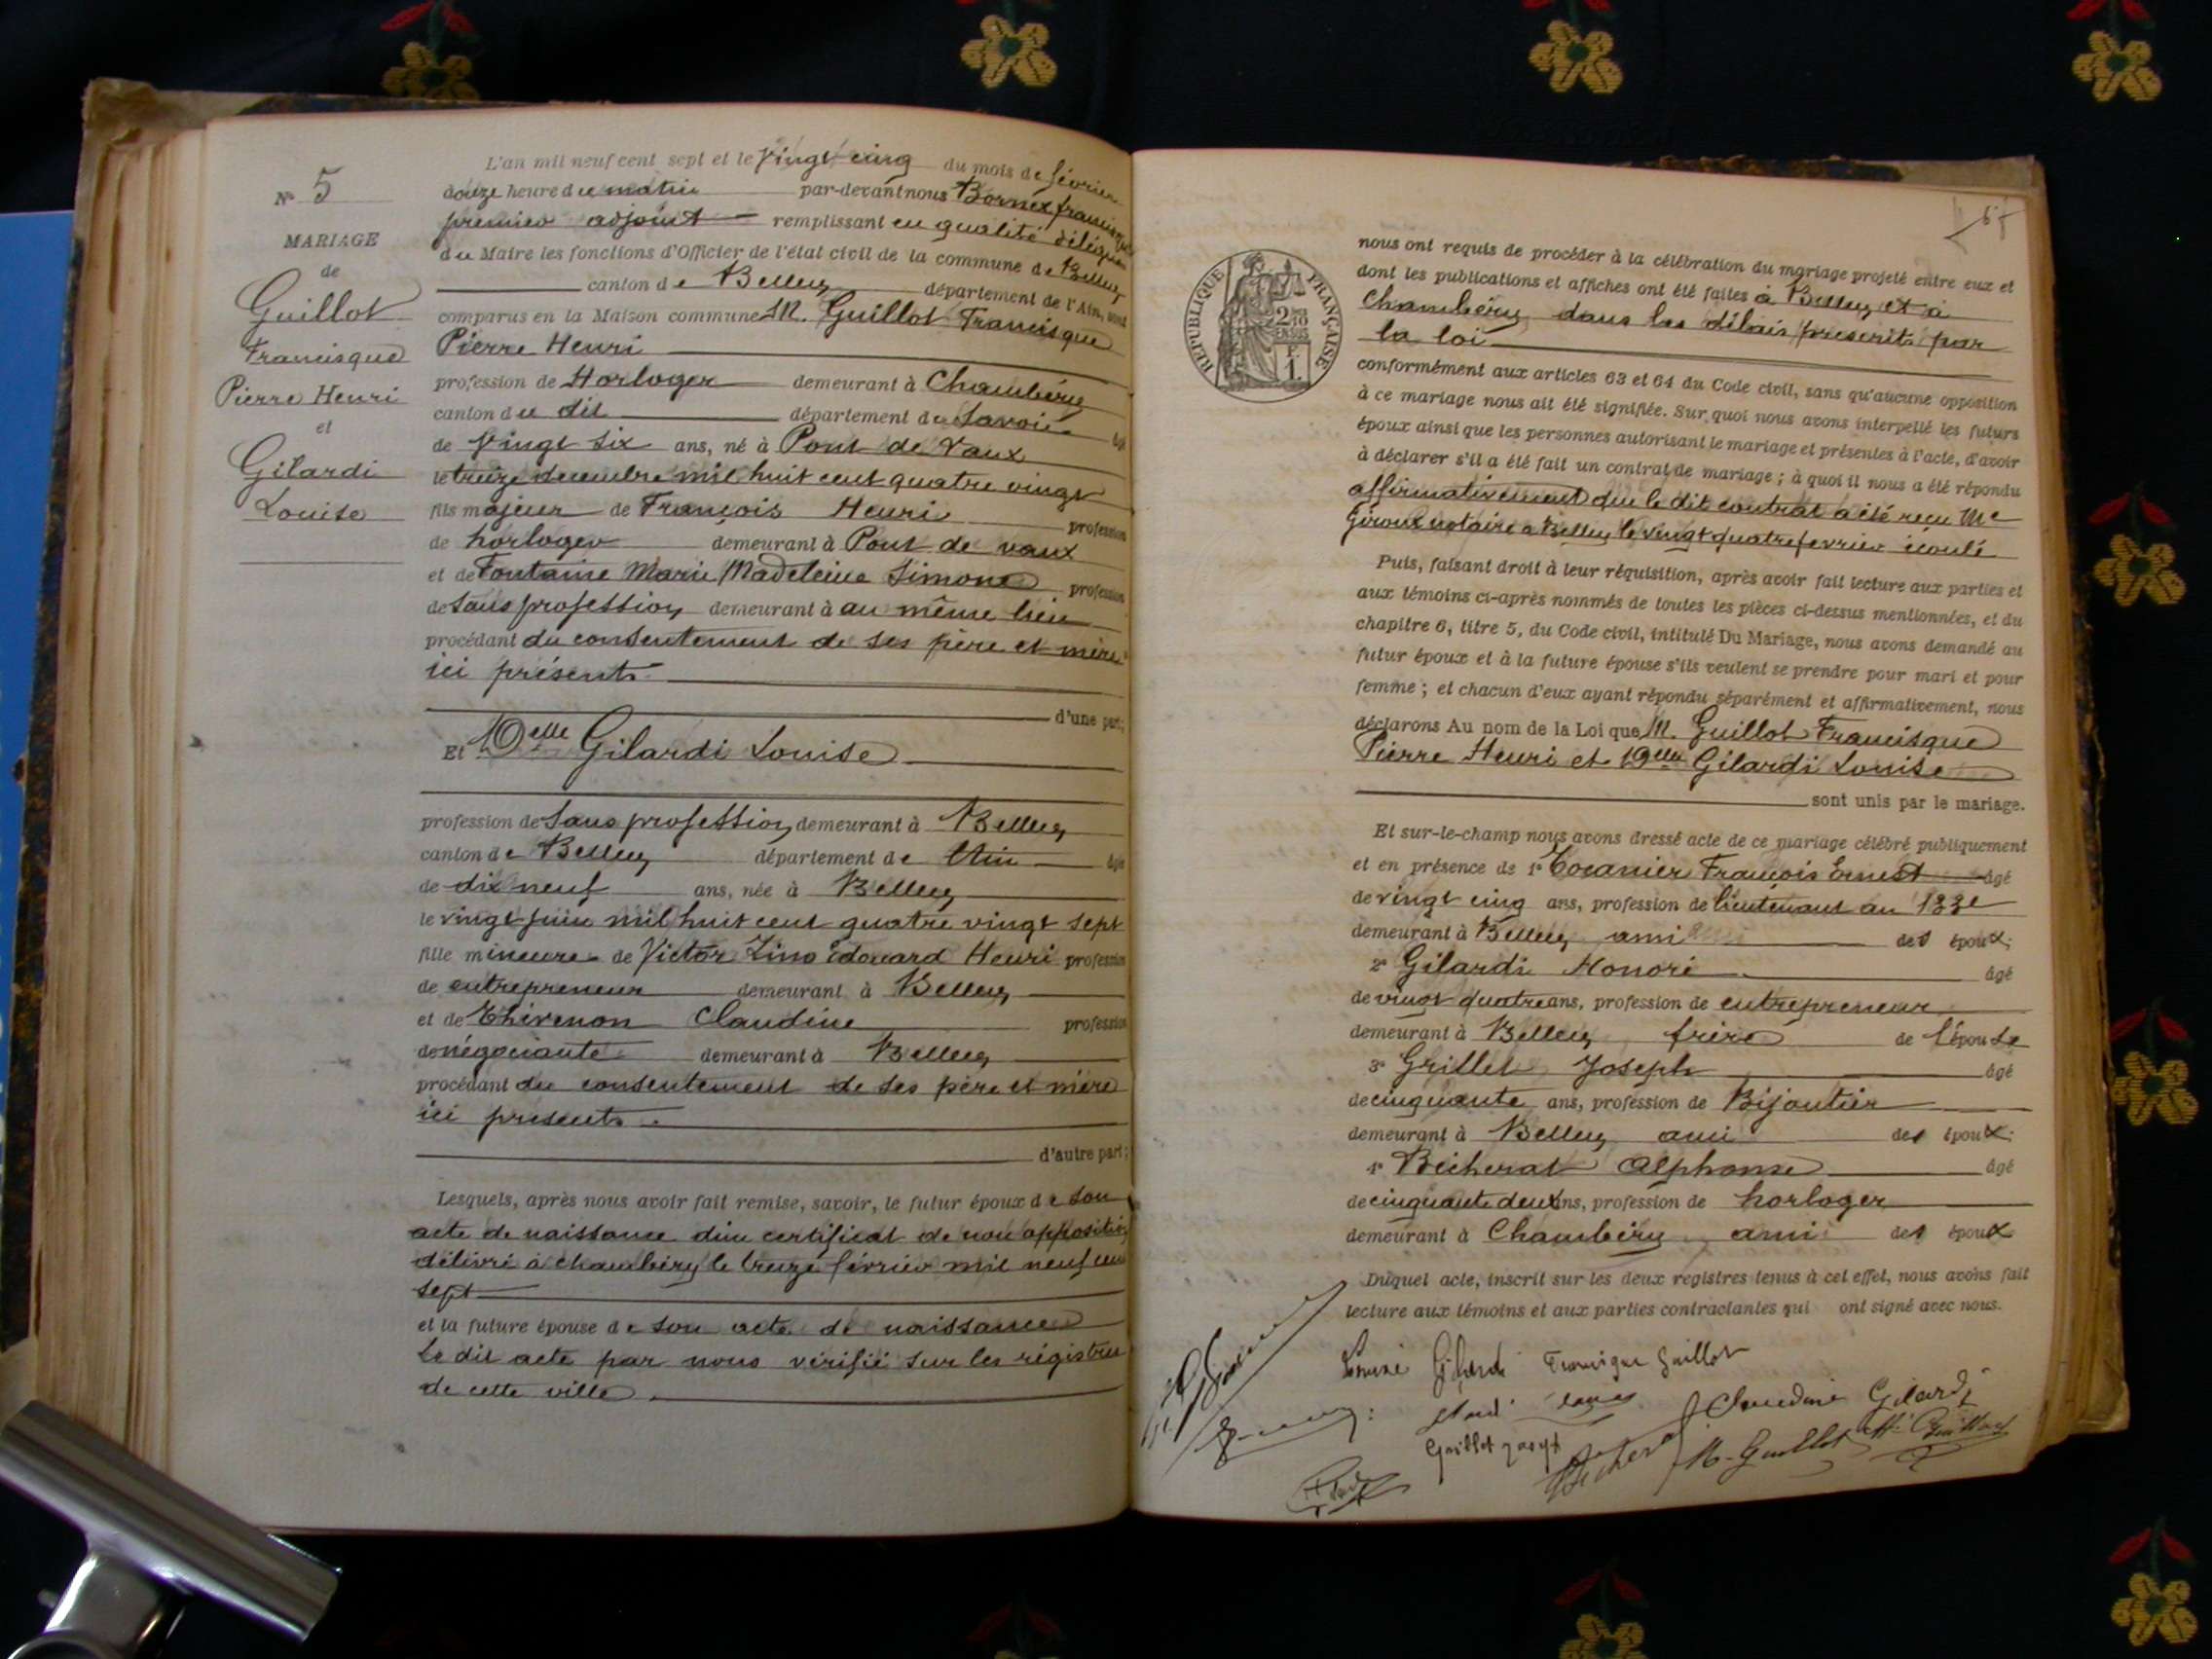 N° 5
MARIAGE
de
Guillot
Francisque
Pierre Henri
et
Gilardi
Louise
L'an mil neuf cent sept et le vingt cinq du mois de février
douze heure du matin par-devant nous Bornex
premier adjoint remplissant en qualité délégué
du Maire les fonctions d'Officier de l'état civil de la commune de Belley
canton de Belley département de l'Ain, sont
comparus en la Maison commune M. Guillot Francisque
Pierre Henri
profession de Horloger demeurant à Chambéry
canton du dit département de Savoie âgé
de vingt six ans, né à Pont de Vaux
le treize decembre mil huit cent quatre vingt
fils majeur de François Henri profession
de horloger demeurant à Pont de vaux
et de Fontaine Marie Madeleine Simone profession
de sans profession demeurant à au même lieu
procédant du consentement de ses père et mère
ici présents
d'une part;
Et Delle Gilardi Louise
profession de sans profession demeurant à Belley
canton de Belley département de Ain âgée
de dix neuf ans, née à Belley
le vingt juin mil huit cent quatre vingt sept
fille mineure de Victor Zino Edouard Henri profession
de entrepreneur demeurant à Belley
et de Thivenon Claudine profession
de négociante demeurant à Belley
procédant du consentement de ses père et mère
ici présents.
d'autre part;
Lesquels, après nous avoir fait remise, savoir, le futur époux de son
acte de naissance d'un certificat de non opposition
délivré à chambéry le treize février mil neuf cent
sept
et la future épouse de son acte de naissance
Le dit acte par nous vérifié sur les régistres
de cette ville.
5
REPUBLIQUE FRANÇAISE
2/10 EN SUS
F.
1.
nous ont requis de procéder à la célébration du mariage projeté entre eux et
dont les publications et affiches ont été faites à Belley et à
Chambéry dans les délais prescrits par
la loi
conformément aux articles 63 et 64 du Code civil, sans qu'aucune opposition
à ce mariage nous ait été signifiée. Sur quoi nous avons interpellé les futurs
époux ainsi que les personnes autorisant le mariage et présentes à l'acte, d'avoir
à déclarer s'il a été fait un contrat de mariage ; à quoi il nous a été répondu
affirmativement que le dit contrat a été reçu Me
Giroux notaire a Belley le vingt quatre fevrier écoulé
Puis, faisant droit à leur réquisition, après avoir fait lecture aux parties et
aux témoins ci-après nommés de toutes les pièces ci-dessus mentionnées, et du
chapitre 6, titre 5, du Code civil, intitulé Du Mariage, nous avons demandé au
futur époux et à la future épouse s'ils veulent se prendre pour mari et pour
femme ; et chacun d'eux ayant répondu séparément et affirmativement, nous
déclarons Au nom de la Loi que M. Guillot Francisque
Pierre Henri et Delle Gilardi Louise
sont unis par le mariage.
Et sur-le-champ nous avons dressé acte de ce mariage célébré publiquement
et en présence de 1° Cocanier François Ernest âgé
de vingt cinq ans, profession de lieutenant au 133e
demeurant à Belley ami des époux;
2° Gilardi Honoré âgé
de vingt quatre ans, profession de entrepreneur
demeurant à Belley frère de l'épouse
3° Grillet Joseph âgé
de cinquante ans, profession de Bijoutier
demeurant à Belley ami des époux;
4° Bicherat Alphonse âgé
de cinquante deux ans, profession de horloger
demeurant à Chambéry ami des époux
Duquel acte, inscrit sur les deux registres tenus à cet effet, nous avons fait
lecture aux témoins et aux parties contractantes qui ont signé avec nous.
Louise Gilardi Francisque Guillot
Claudine Gilardi
M. Guillot